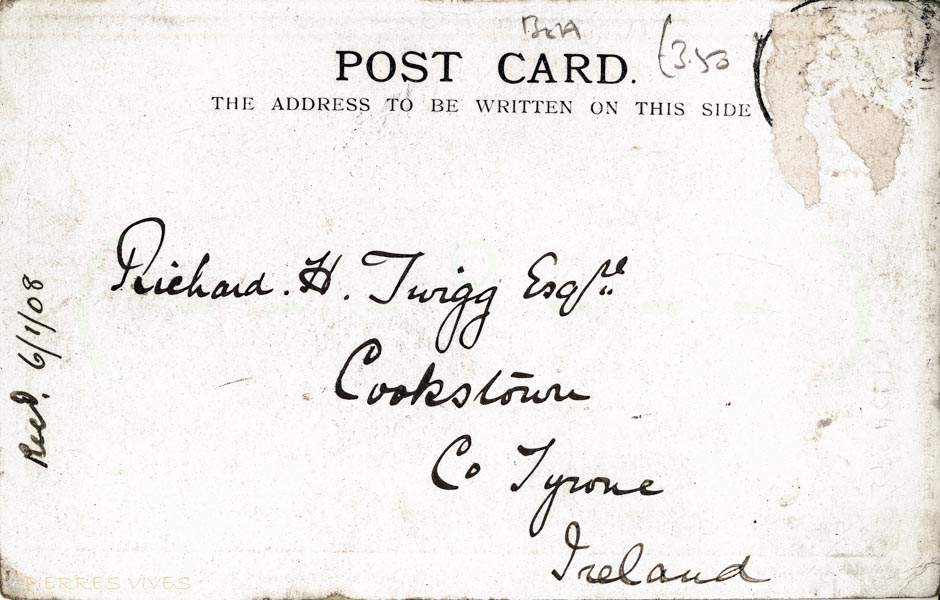 POST CARD.
(3.50
THE ADDRESS TO BE WRITTEN ON THIS SIDE
Richard. H. Twigg Esqre
Cookstown
Co Tyrone
Ireland
Recd. 6/1/08
PIERRES VIVES